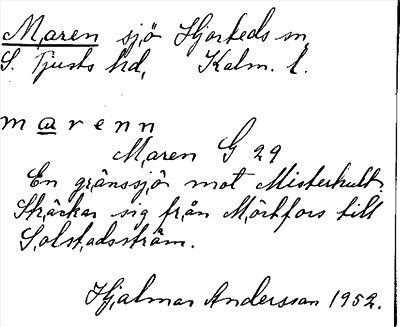 Maren sjö Hjorteds sn,
S. Tjusts hd, Kalm. l.
marenn
Maren G 29
En gränssjö mot Misterhult.
Sträckar sig från Mörtfors till
Solstadsström.
Hjalmar Andersson 1952.